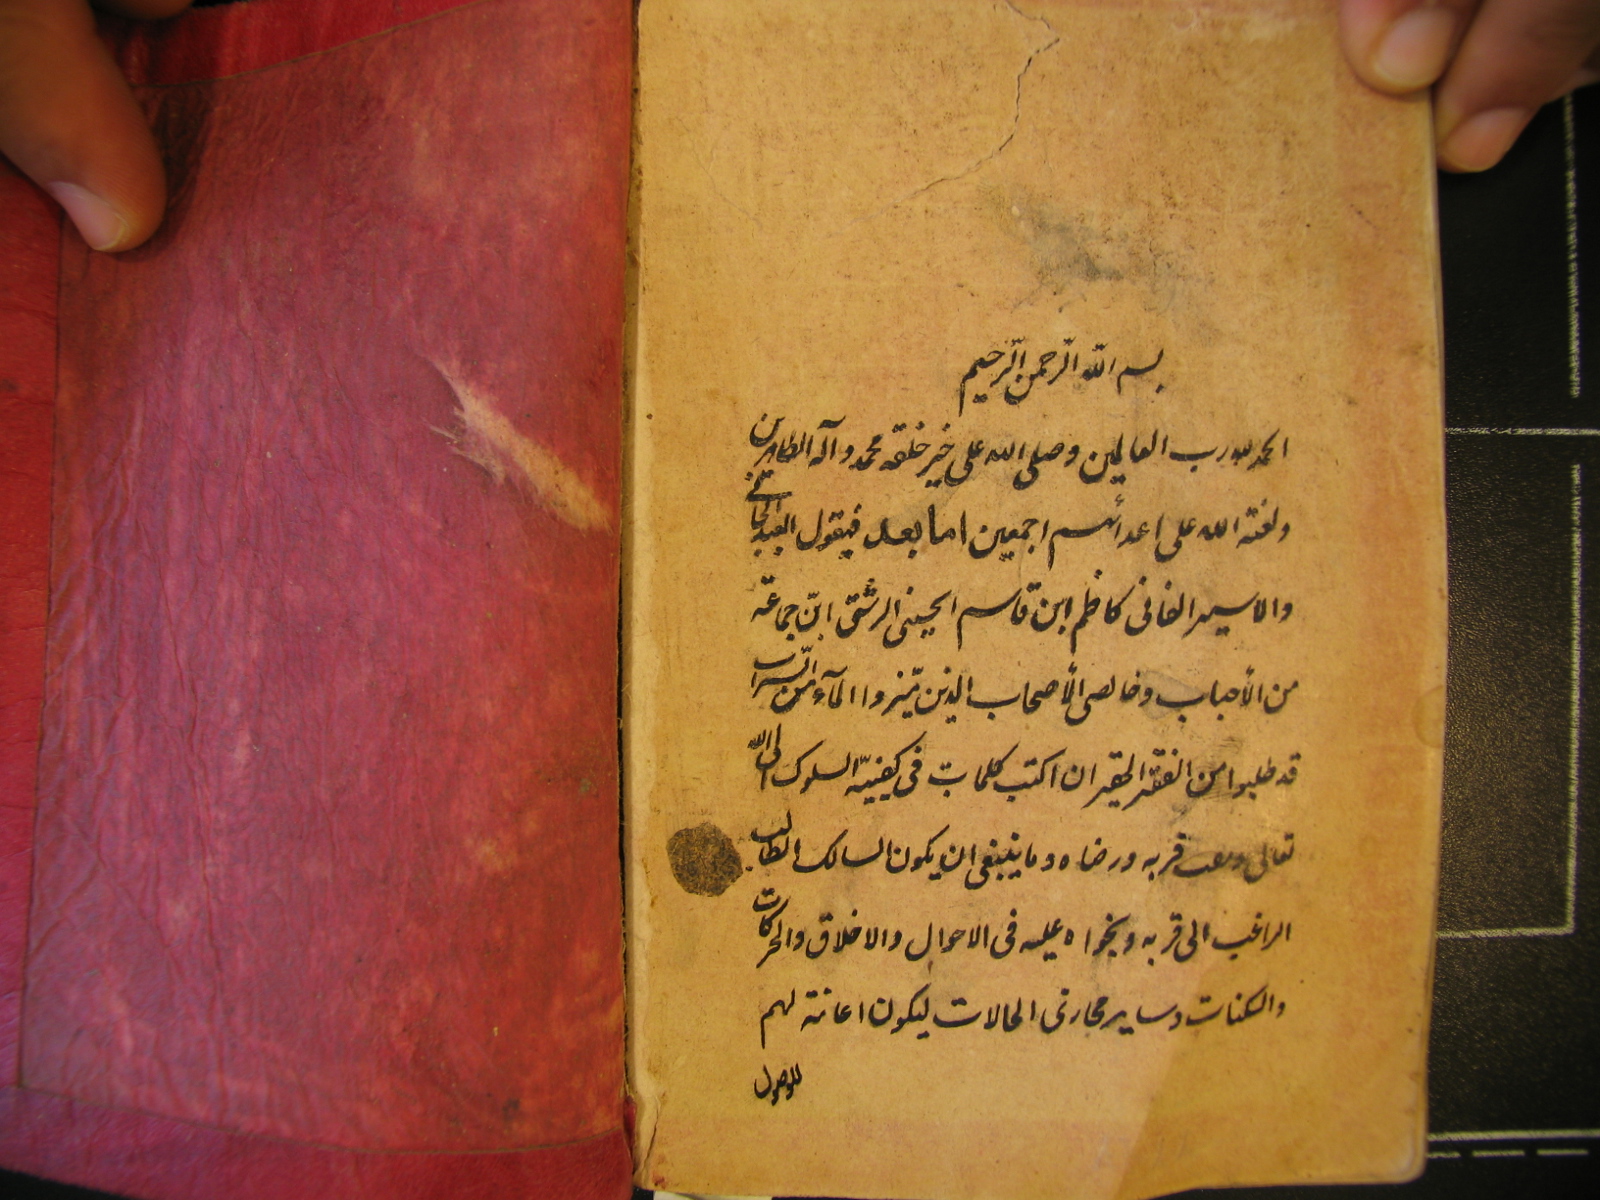 بسم الله الرحمن الرحيم
الحمد لله رب العالمين وصلى الله على خير خلقه محمد وآله الطاهرين
ولعنة الله على اعدائهم اجمعين اما بعد فيقول العبد الجانى
والاسير الفانى كاظم ابن قاسم الحسينى الرشتى انّ جماعة
من الأحباب وخالصى الأصحاب الذين ميّزوا المآء من السّراب
قد طلبوا من الفقير الحقير ان اكتب كلمات فى كيفيّة السلوك الى الله
تعالى قربه ورضاه وما ينبغى ان يكون السالك الطالب
الراغب الى قربه ونجواه عليه فى الاحوال والاخلاق والحركات
والسكنات وساير مجارى الحالات ليكون اعانة لهم
للوصول